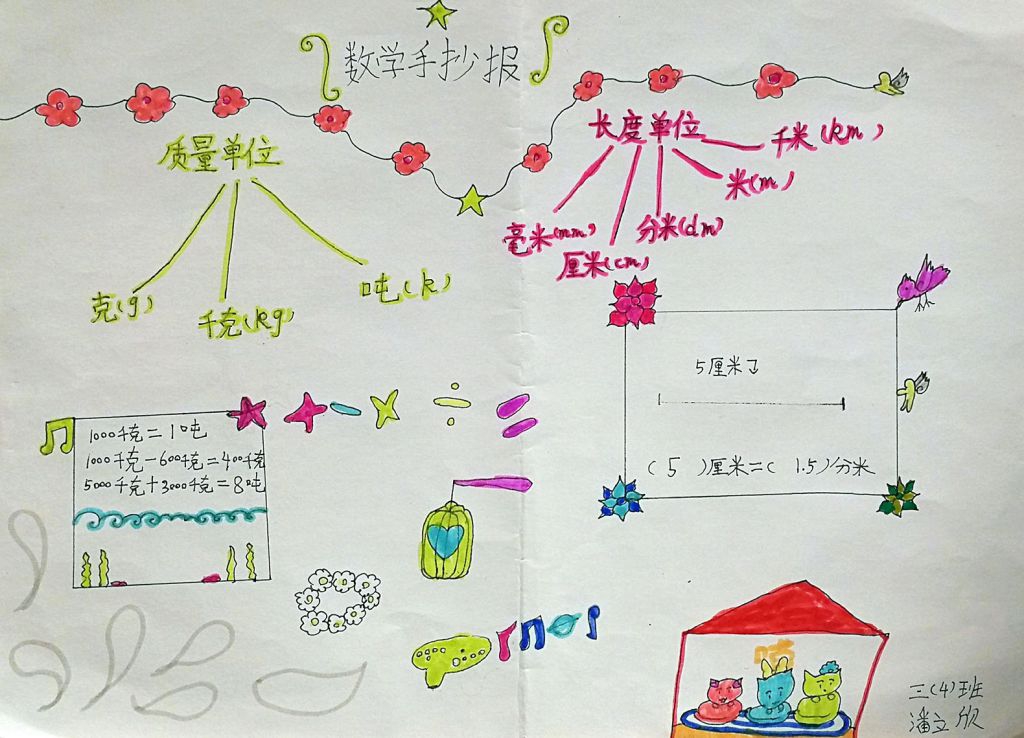 数学手抄报
质量单位
克(g)
千克(kg)
吨(k)
长度单位
千米(km)
米(m)
分米(dm)
厘米(cm)
毫米(mm)
1000千克=1吨
1000千克-600千克=400千克
5000千克+3000千克=8吨
+ - × ÷ =
5厘米
( 5 )厘米=( 1.5)分米
三(4)班
潘立欣